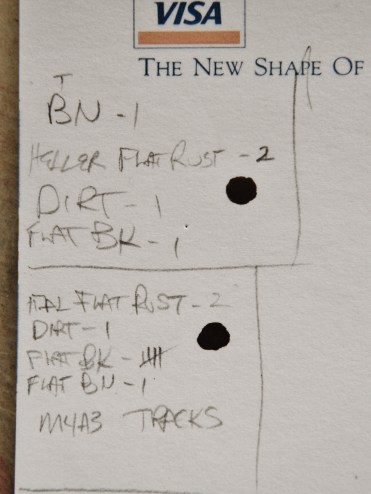 VISA
THE NEW SHAPE OF
T
BN - 1
HELLER FLAT RUST - 2
DIRT - 1
FLAT BK - 1
FLAT RUST - 2
DIRT - 1
FLAT BK -
FLAT BN - 1
M4A3 TRACKS